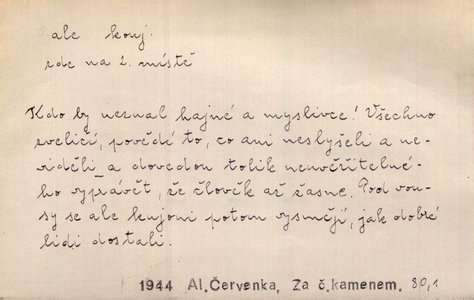 ale konj.
zde na 2. místě
Kdo by neznal hajné a myslivce! Všechno
zveličí, povědě to, co ani neslyšeli a ne-
viděli a dovedou tolik neuvěřitelné-
ho vyprávět, že člověk až žasne. Pod vou-
sy se ale kujoni potom vysmějí, jak dobré
lidi dostali.
1944 Al. Červenka, Za č. kamenem. 80,1